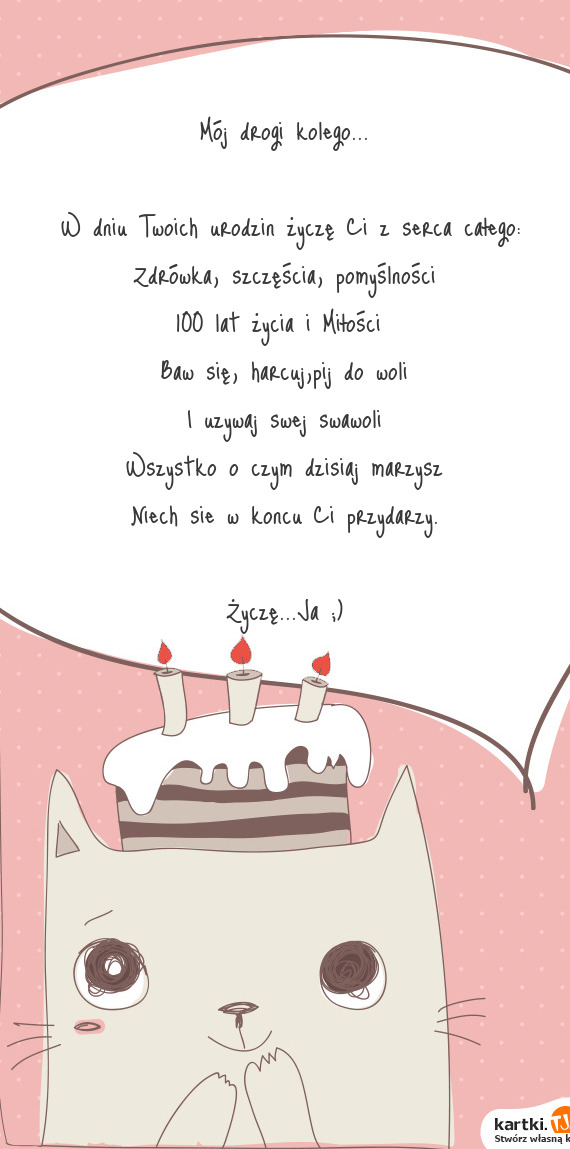 Mój drogi kolego...
W dniu Twoich urodzin życzę Ci z serca całego:
Zdrówka, szczęścia, pomyślności
100 lat życia i Miłości
Baw się, harcuj,pij do woli
I uzywaj swej swawoli
Wszystko o czym dzisiaj marzysz
Niech sie w koncu Ci przydarzy.
Życzę...Ja ;)
kartki.TJ
Stwórz własną k